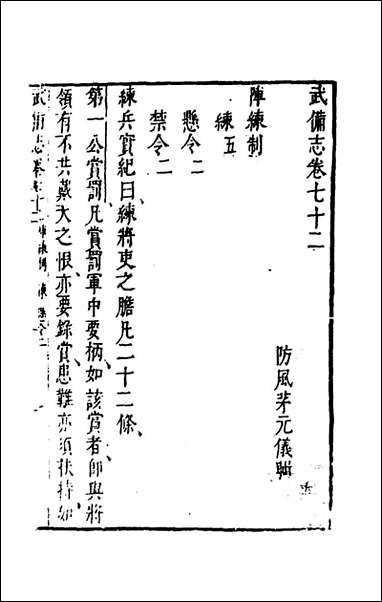 武備志卷七十二
防風茅元儀輯
陣練制
練五
懸令二
禁令二
練兵實紀曰、練將吏之膽、凡二十二條、
第一公賞罰、凡賞罰軍中要柄、如該賞者、卽與將
領有不共戴天之恨、亦要錄賞、患難亦須扶持、如
武備志卷七十二